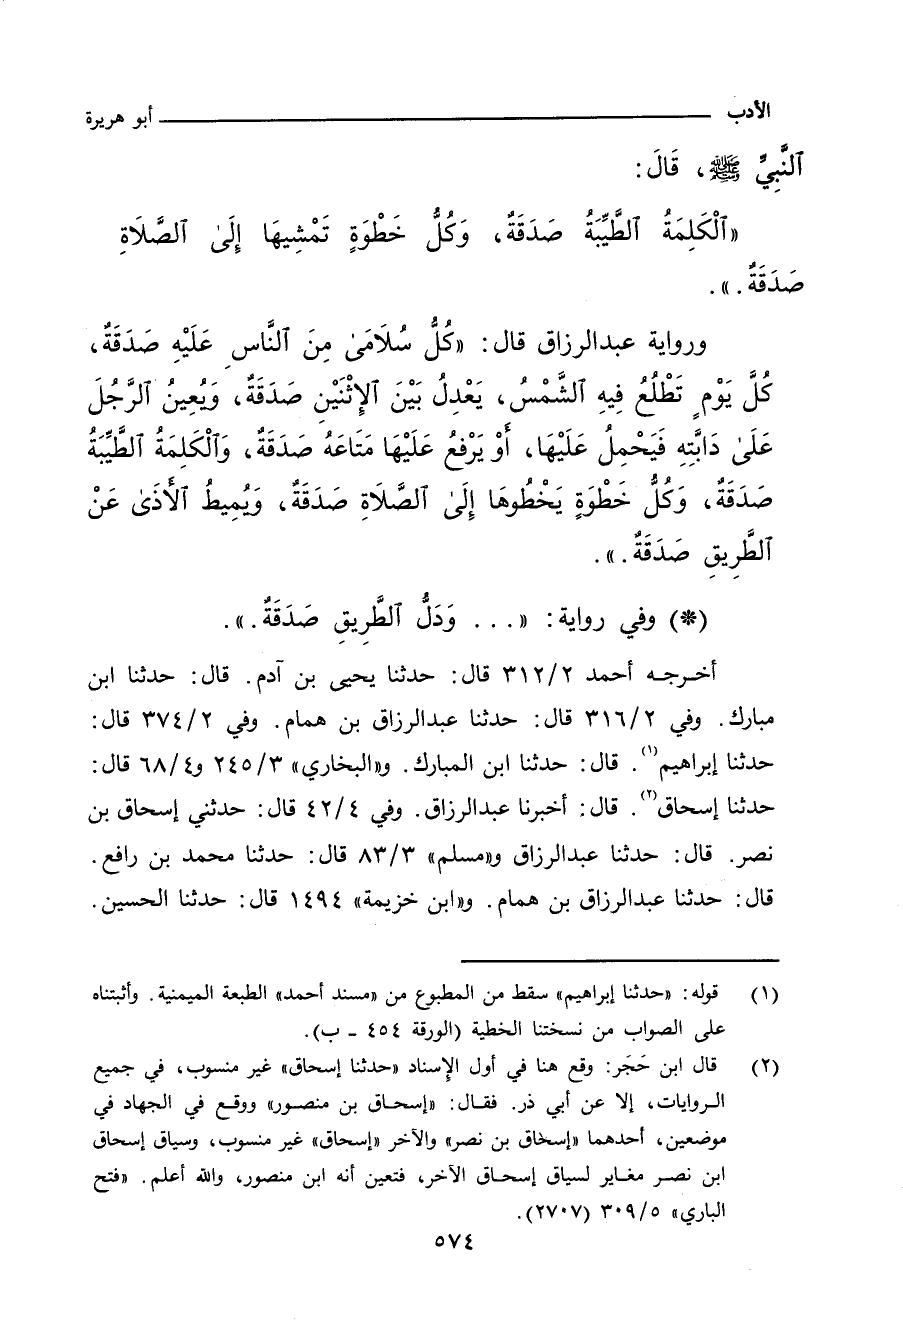 الأدب ــــــــــ أبو هريرة
ٱلنَّبِيِّ ﷺ، قَالَ:
«ٱلْكَلِمَةُ ٱلطَّيِّبَةُ صَدَقَةٌ، وَكُلُّ خَطْوَةٍ تَمْشِيهَا إِلَىٰ ٱلصَّلَاةِ
صَدَقَةٌ.».
ورواية عبدالرزاق قال: «كُلُّ سُلَامَىٰ مِنَ ٱلنَّاسِ عَلَيْهِ صَدَقَةٌ،
كُلَّ يَوْمٍ تَطْلُعُ فِيهِ ٱلشَّمْسُ، يَعْدِلُ بَيْنَ ٱلِإثْنَيْنِ صَدَقَةٌ، وَيُعِينُ ٱلرَّجُلَ
عَلَىٰ دَابَّتِهِ فَيَحْمِلُ عَلَيْهَا، أَوْ يَرْفَعُ عَلَيْهَا مَتَاعَهُ صَدَقَةٌ، وَٱلْكَلِمَةُ ٱلطَّيِّبَةُ
صَدَقَةٌ، وَكُلُّ خَطْوَةٍ يَخْطُوهَا إِلَىٰ ٱلصَّلَاةِ صَدَقَةٌ، وَيُمِيطُ ٱلْأَذَىٰ عَنْ
ٱلطَّرِيقِ صَدَقَةٌ.».
(*) وفي رواية: «... وَدَلُّ ٱلطَّرِيقِ صَدَقَةٌ.».
أخرجه أحمد ٣١٢/٢ قال: حدثنا يحيى بن آدم. قال: حدثنا ابن
مبارك. وفي ٣١٦/٢ قال: حدثنا عبدالرزاق بن همام. وفي ٣٧٤/٢ قال:
حدثنا إبراهيم(١). قال: حدثنا ابن المبارك. و«البخاري» ٢٤٥/٣ و٦٨/٤ قال:
حدثنا إسحاق(٢). قال: أخبرنا عبدالرزاق. وفي ٤٢/٤ قال: حدثني إسحاق بن
نصر. قال: حدثنا عبدالرزاق و«مسلم» ٨٣/٣ قال: حدثنا محمد بن رافع.
قال: حدثنا عبدالرزاق بن همام. و«ابن خزيمة» ١٤٩٤ قال: حدثنا الحسين.
(١) قوله: «حدثنا إبراهيم» سقط من المطبوع من «مسند أحمد» الطبعة الميمنية. وأثبتناه
على الصواب من نسختنا الخطية (الورقة ٤٥٤ - ب).
(٢) قال ابن حَجَر: وقع هنا في أول الإسناد «حدثنا إسحاق» غير منسوب، في جميع
الروايات، إلا عن أبي ذر. فقال: «إسحاق بن منصور» ووقع في الجهاد في
موضعين، أحدهما «إسحاق بن نصر» والآخر «إسحاق» غير منسوب، وسياق إسحاق
ابن نصر مغاير لسياق إسحاق الآخر، فتعين أنه ابن منصور، والله أعلم. «فتح
الباري» ٣٠٩/٥ (٢٧٠٧).
٥٧٤